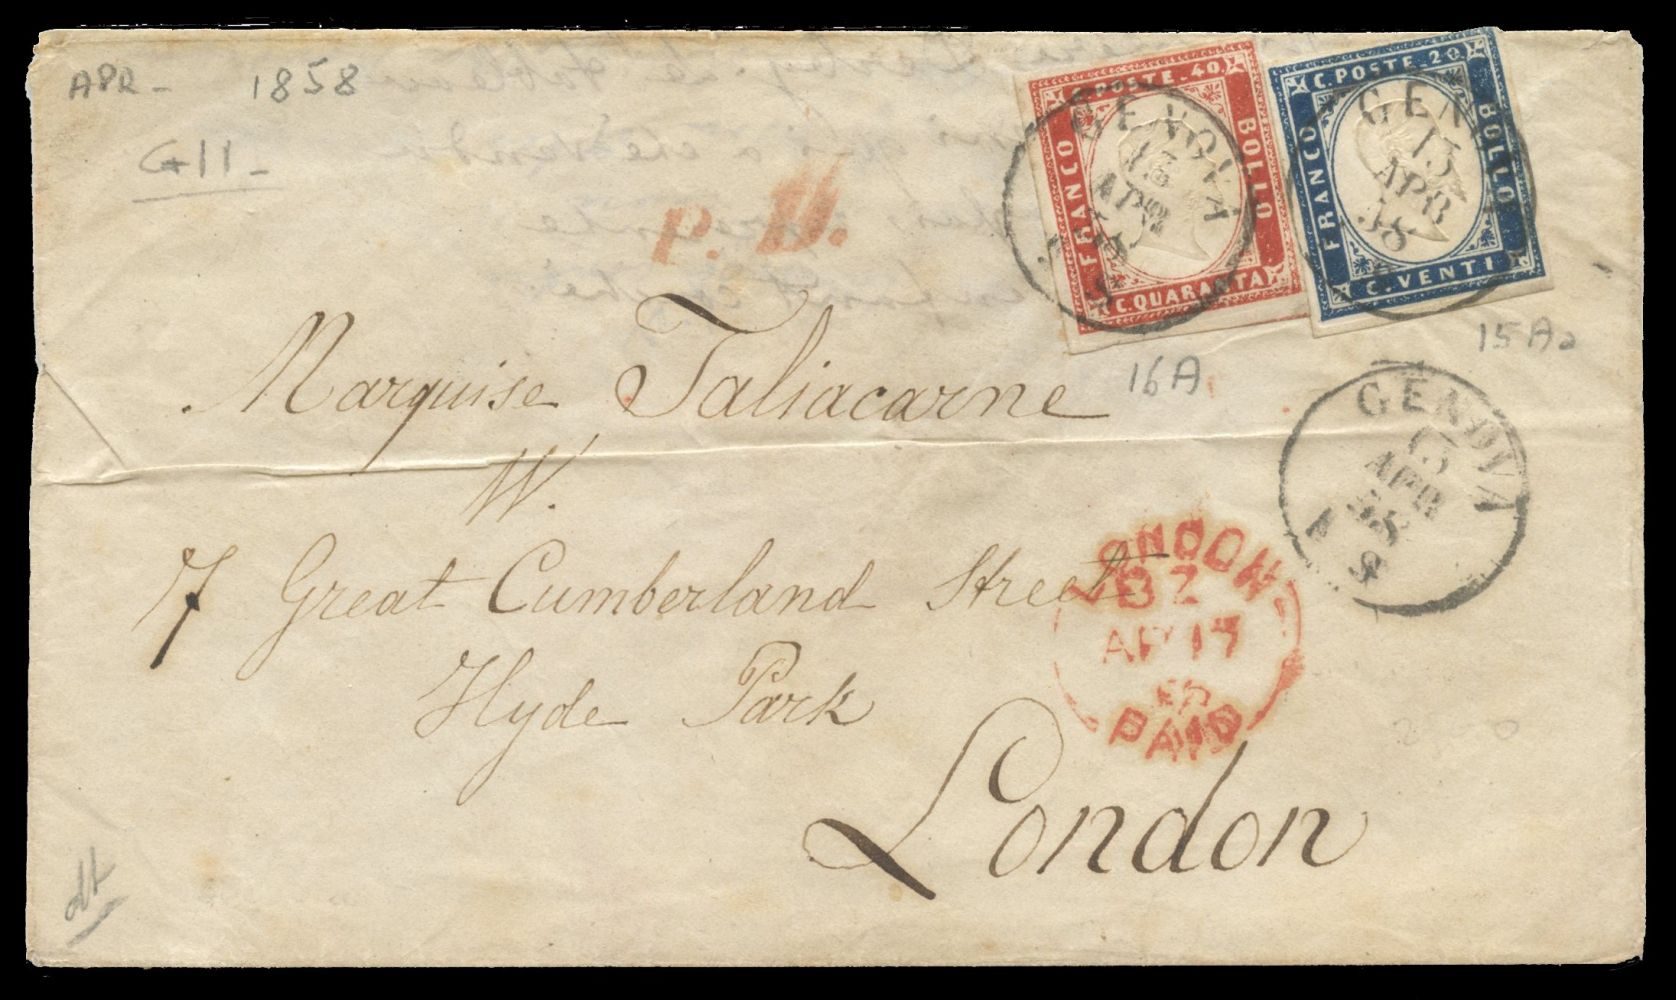 APR - 1858
G11 -
P.D.
C. POSTE. 40.
FRANCO
BOLLO
C. QUARANTA
GENOVA
13
APR
58
C. POSTE. 20
FRANCO
BOLLO
C. VENTI
GEN
13
APR
58
16A
15Aa
Marquise Taliacarne
W.
7 Great Cumberland Street
Hyde Park
London
GENOVA
APR
58
LONDON
BZ
AP 17
58
PAID